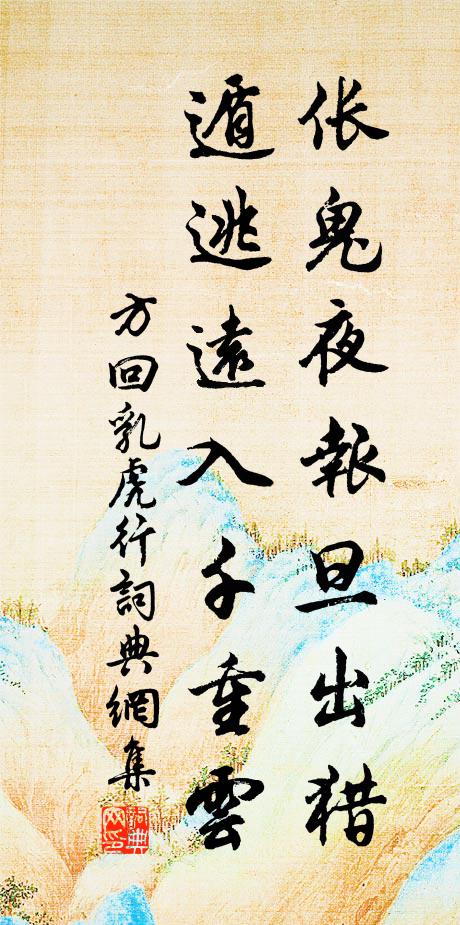 伥鬼夜報旦出猎
遁逃遠入千重雲
方回乳虎行詞典網集
詞典
网印